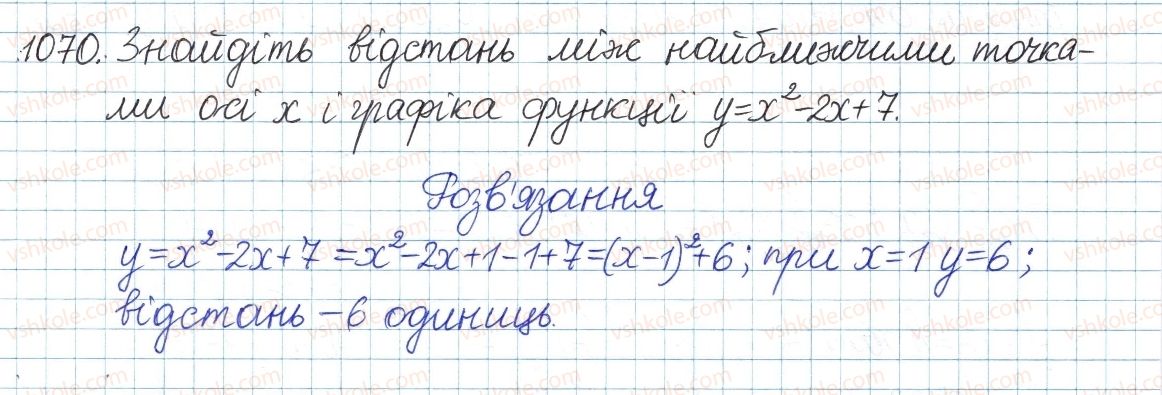 1070. Знайдіть відстань між найближчими точка-
ми осі x і графіка функції y=x²-2x+7.
Розв'язання
y=x²-2x+7=x²-2x+1-1+7=(x-1)²+6; при x=1 y=6;
відстань – 6 одиниць.